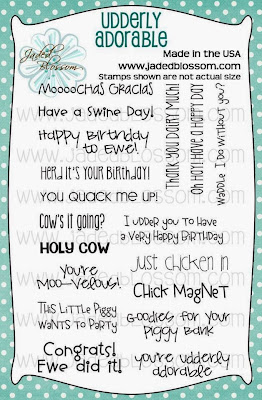 UDDERLY
ADORABLE
Jaded
Blossom
Made in the USA
www.jadedblossom.com
Stamps shown are not actual size
MoooochAs GrAciAs
Have a Swine Day!
Happy Birthday
to Ewe!
Herd it's Your Birthday!
You quack me up!
Cow's it going?
HOLY COW
You're
Moo-Velous!
This Little Piggy
Wants to Party
Congrats!
Ewe did it!
Thank you Dairy Much!
Oh Hay! Have a Happy Day
Waddle I Do without You?
I udder you to Have
a Very Happy Birthday
Just chicken in
Chick Magnet
Goodies for Your
Piggy Bank
you're udderly
adorable
www.Jadedblossom.com
www.Jadedblossom.com
www.Jadedblossom.com
www.Jadedblossom.com